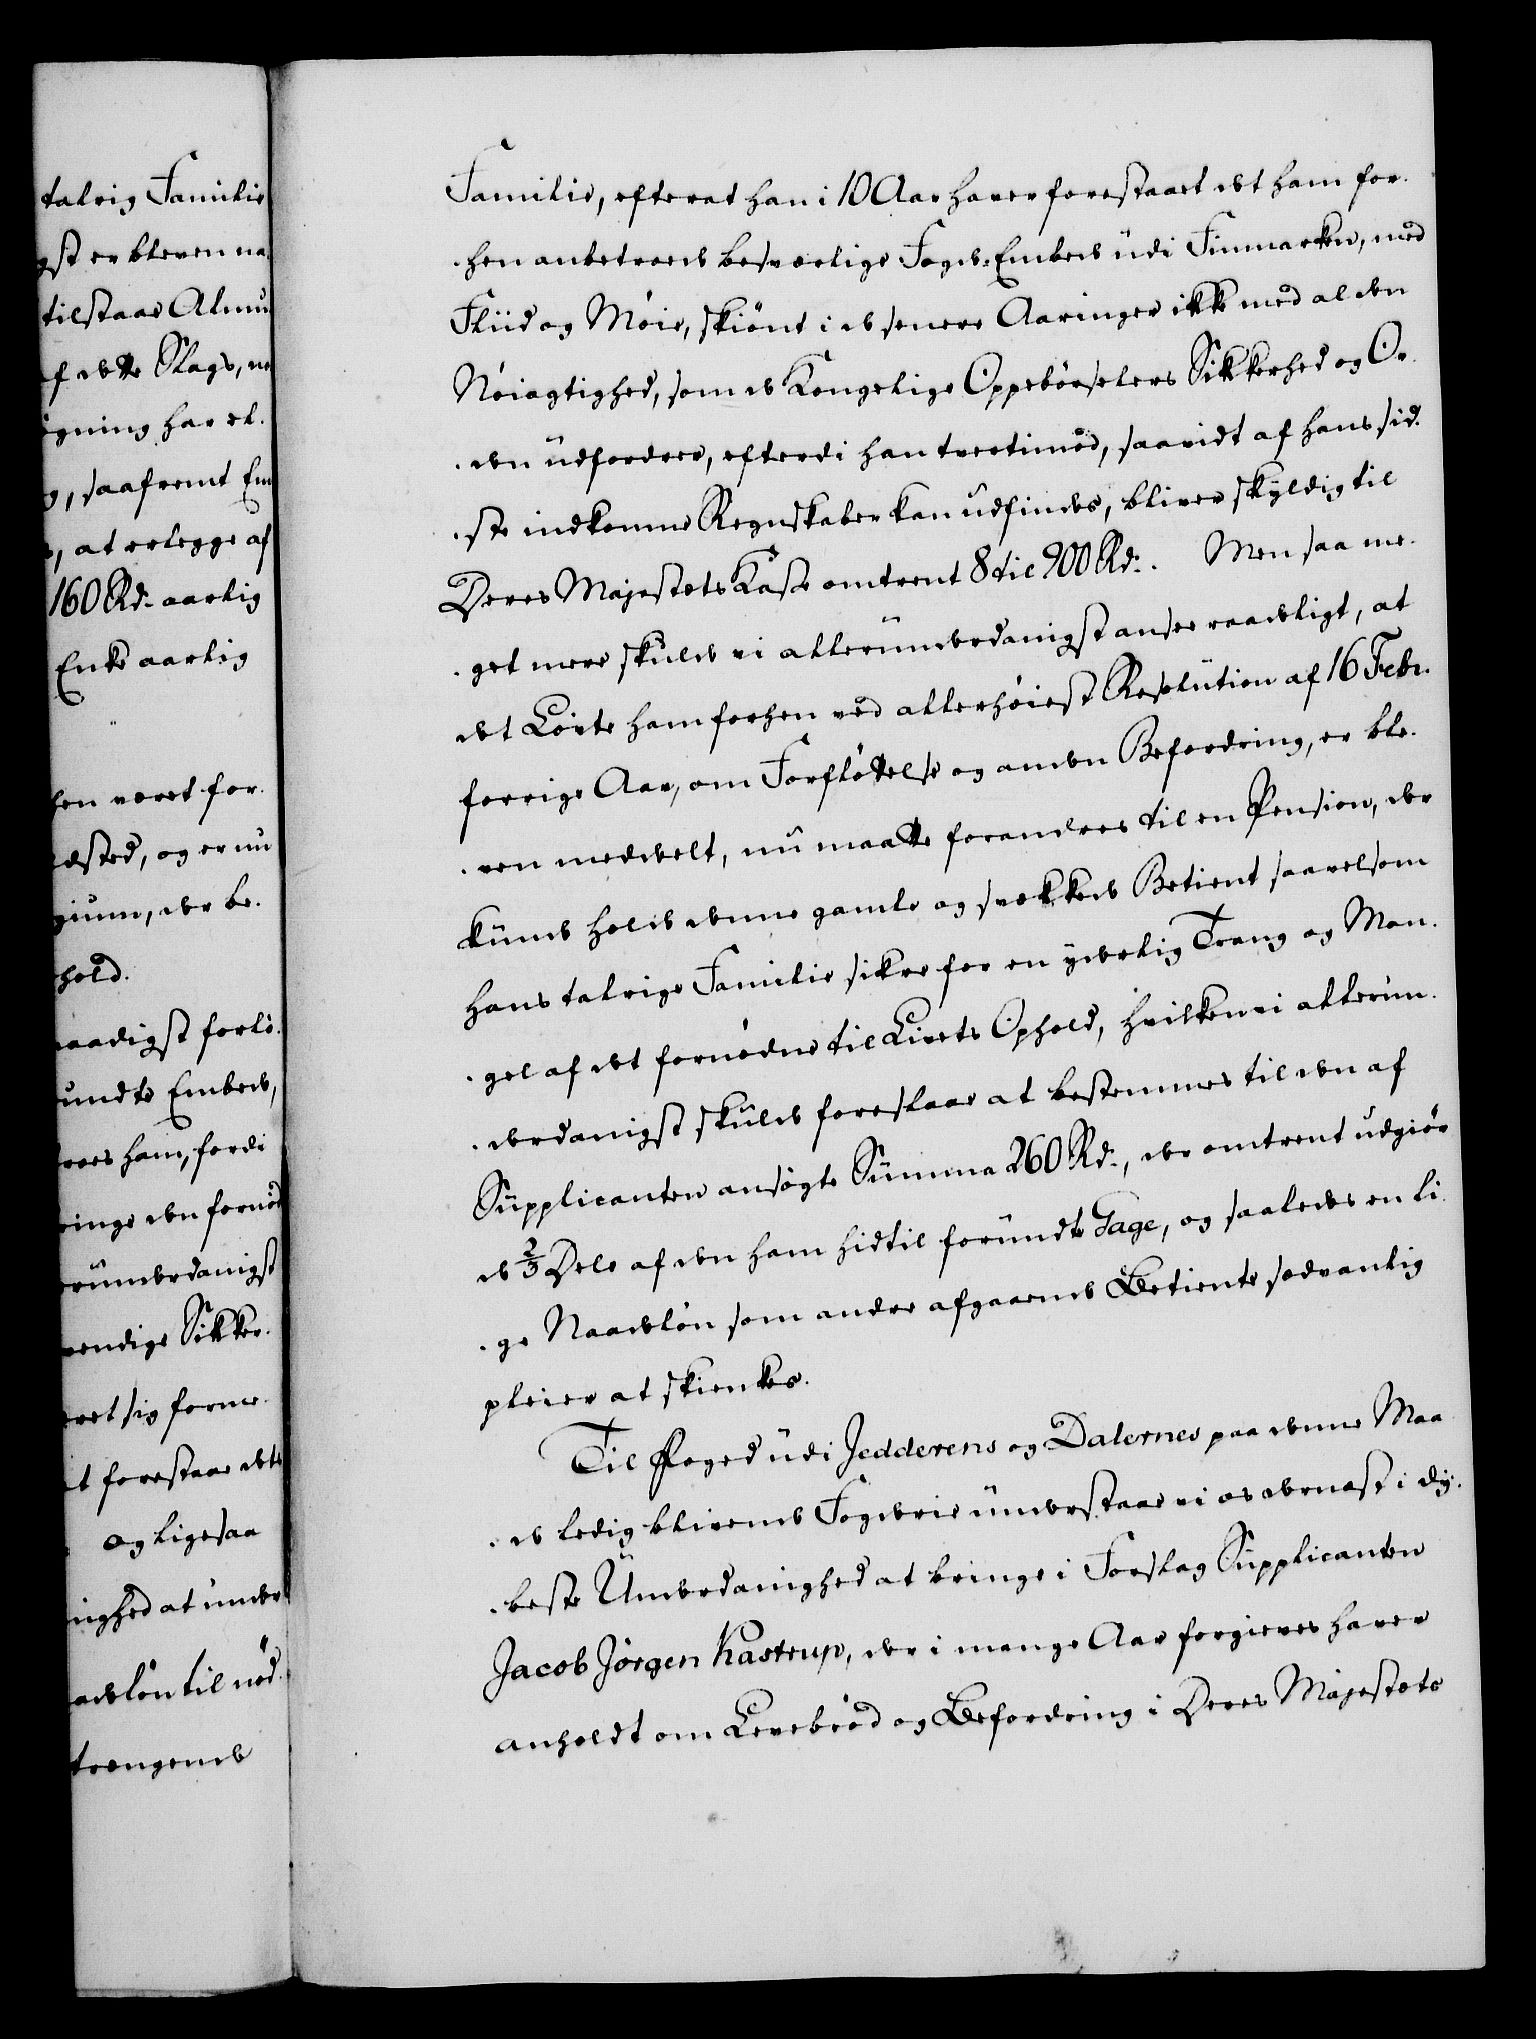 talrig Familie
gst er bleven na
tilstaae Almu
f dette Slags, ne
gning har el.
g, saafremt Em
, at erlegge af
160 Rd. aarlig
Enke aarlig
hen været for.
dsted, og er nu
gium, der be.
hold.
naadigst forlö.
undte Embede,
roes ham, fordi
ringe den fornöd
ründerdanigst
vendige Sikker.
eret sig forme
t forestaae dette
og ligesaa
nighed at under
adelön til nöd.
trængende
Familie, efterat han i 10 Aar haver forestaaet det ham for.
.hen anbetroede besværlige Foged-Embede üdi Finmarken, med
Fliid og Möie, skiönt i de senere Aaringer ikke med al den
Nöiagtighed, som de Kongelige Oppebörselers Sikkerhed og Or.
.den üdfordrer, efterdi han tvertimod, saavidt af hans sid.
.ste indkomne Regnskaber kan üdfindes, bliver skyldig til
Deres Majestets Kasse omtrent 8 til 900 Rd. Men saa me.
.get mere skulde vi alleründerdanigst ansee raadeligt, at
det Löfte ham forhen ved allerhöiest Resolution af 16 Febr.
forrige Aar, om Forflöttelse og anden Befordring, er ble.
.ven meddeelt, nu maatte forandres til en Pension, der
künde holde denne gamle og svækkede Betient saavelsom
hans talrige Familie sikre for en ynkelig Trang og Man.
.gel af det fornödne til Livets Ophold, hvilken vi allerün.
.derdanigst skulde foreslaae at bestemmes til den af
Supplicanten ansögte Summa 260 Rd., der omtrent udgiör
de 2/3 Dele af den ham hidtil forundte Gage, og saaledes en li.
.ge Naadelön som andre afgaaende Betiente sædvanlig
pleier at skienkes.
Til Foged üdi Jedderens og Dalernes paa denne Maa
.de ledig blivende Fogderie ünderstaae vi os dernæst i dy.
.beste Underdanighed at bringe i Forslag Supplicanten
Jacob Jörgen Kastrup, der i mange Aar forgieves haver
anholdt om Levebröd og Befordring i Deres Majestets